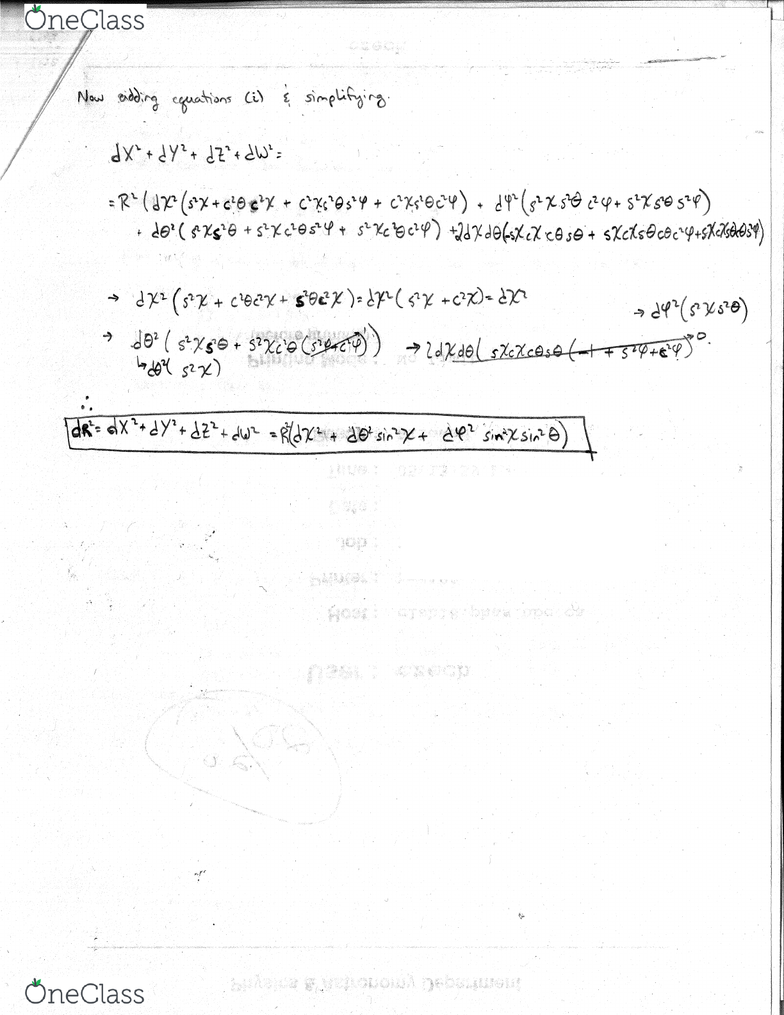 OneClass
Now adding equations (i) & simplifying.
dX² + dY² + dZ² + dW² =
= R² (dχ² (s²χ + c²θ c²χ + c²χ s²θ s²φ + c²χ s²θ c²φ) + dφ² (s²χ s²θ c²φ + s²χ s²θ s²φ)
+ dθ² (s²χ s²θ + s²χ c²θ s²φ + s²χ c²θ c²φ) + 2dχdθ(-sχcχ cθsθ + sχcχ sθcθ c²φ + sχcχ sθcθ s²φ)
→ dχ² (s²χ + c²θc²χ + s²θc²χ) = dχ² (s²χ + c²χ) = dχ²
→ dφ² (s²χ s²θ)
→ dθ² (s²χ s²θ + s²χ c²θ (s²φ + c²φ)) → 2dχdθ( sχcχcθsθ (-1 + s²φ + c²φ) 0.
↳ dθ² ( s²χ)
∴
dR² = dX² + dY² + dZ² + dW² = R² (dχ² + dθ² sin²χ + dφ² sin²χ sin²θ)
Time:
Date:
Job:
Printer:
Host:
User: czech
Physics & Astronomy Department
OneClass